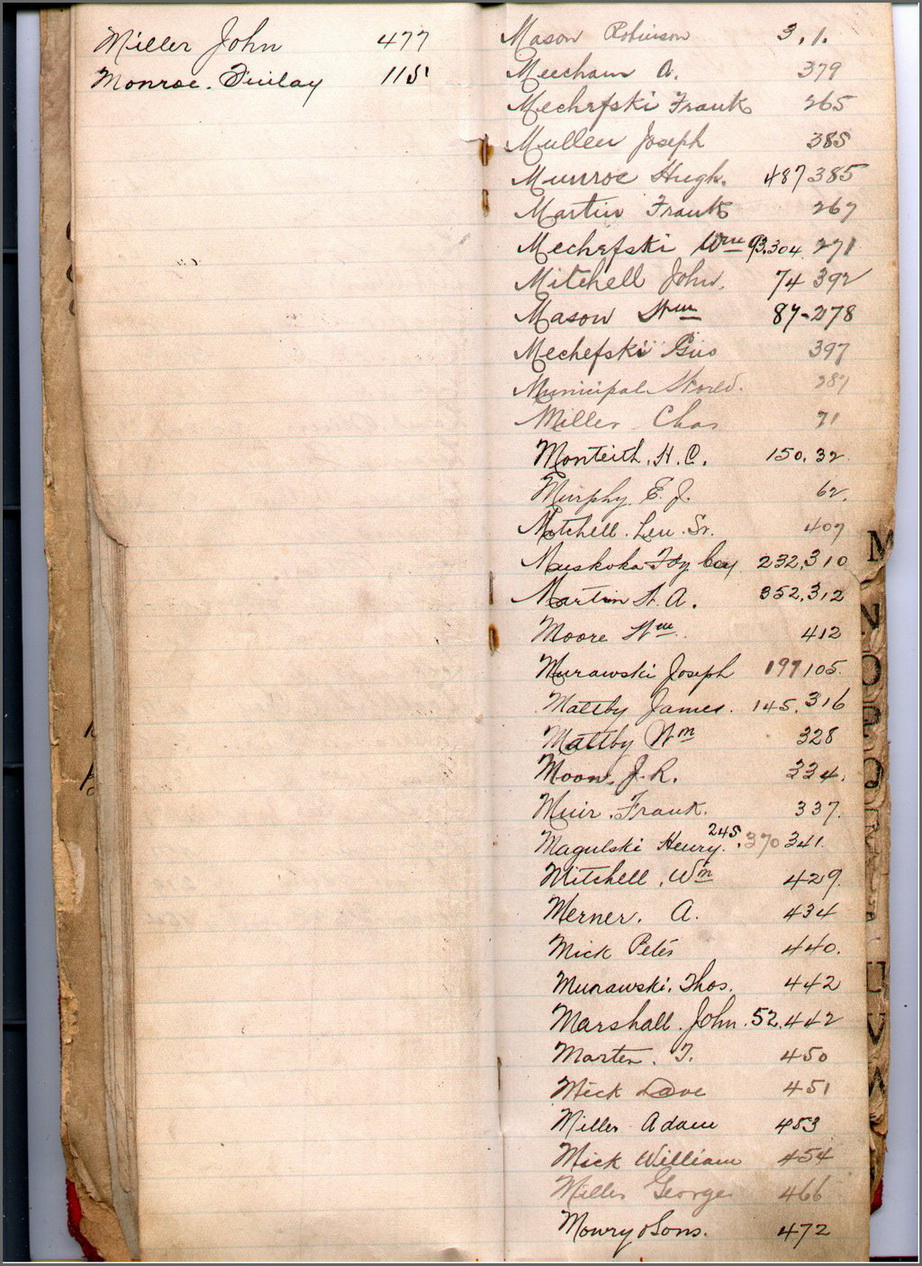 Miller John 477
Monroe. Finlay 115
Mason Robinson 3.1.
Meecham A. 379
Mechefski Frank 265
Muller Joseph 385
Munroe Hugh. 487 385
Martin Frank 267
Mechefski Wm 93.304 271
Mitchell John. 74 392
Mason Wm 87-278
Mechefski Gus 397
Municipal World. 287
Miller Chas 71
Monteith. H. C. 150. 32
Murphy E. J. 62.
Mitchell. Len. Sr. 407
Muskoka Fdy Coy 232, 310
Martin A. 352, 312
Moore Wm 412
Murawski Joseph 197 105
Maltby James. 145. 316
Maltby Wm 328
Moon. J. R. 334.
Muir. Frank. 337.
Magulski Henry. 245. 370 341
Mitchell. Wm 429.
Merner. A. 434
Mick Peter 440.
Murawski. Thos. 442
Marshall. John. 52. 442
Marten. T. 450
Mick Dave 451
Miller Adam 453
Mick William 454
Miller George 466
Mowry & Sons. 472
M
N
O
P
Q
U
V
W